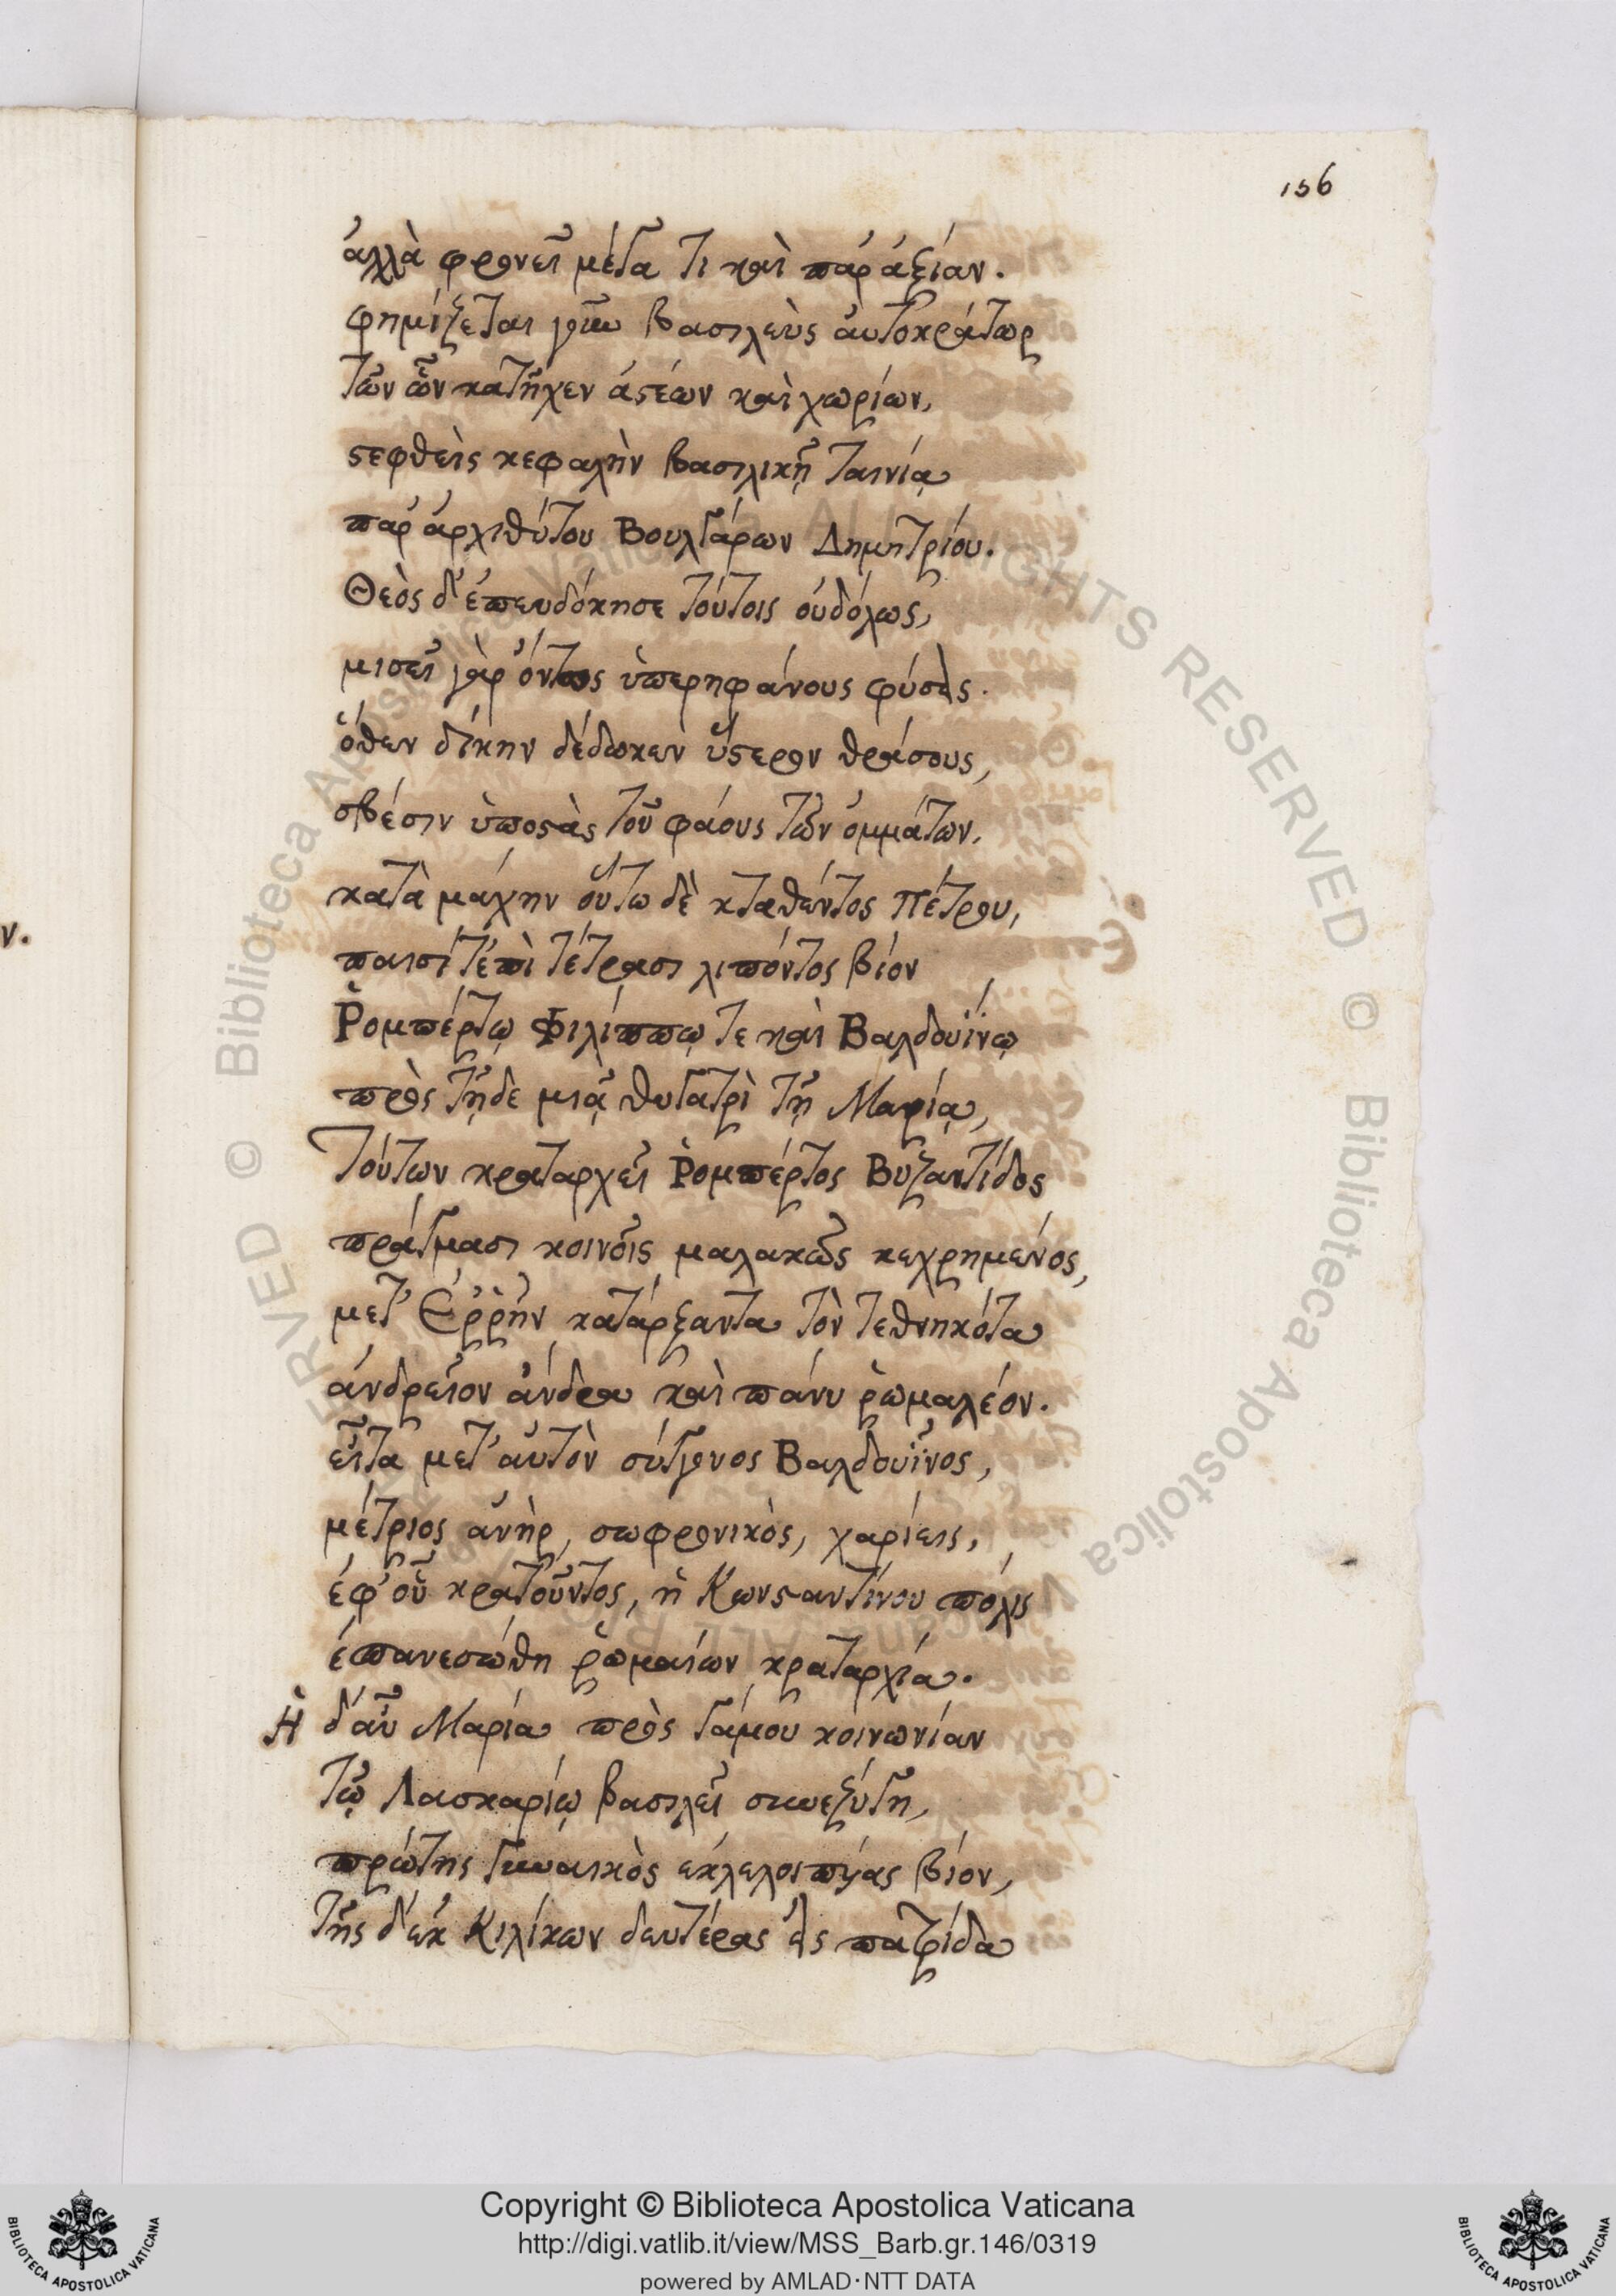 156
ἀλλὰ φρονεῖ μέγα τι καὶ παρ' ἀξίαν.
φημίζεται γοῦν βασιλεὺς αὐτοκράτωρ
τῶν ὧν κατῆχεν ἀστέων καὶ χωρίων,
στεφθεὶς κεφαλὴν βασιλικῇ ταινίᾳ
παρ' ἀρχιθύτου Βουλγάρων Δημητρίου.
Θεὸς δ' ἐπευδόκησε τούτοις οὐδόλως,
μισεῖ γὰρ ὄντως ὑπερηφάνους φύσεις.
ὅθεν δίκην δέδωκεν ὕστερον θράσους,
σβέσιν ὑποστὰς τοῦ φάους τῶν ὀμμάτων.
κατὰ μάχην οὕτω δὲ κταθέντος Πέτρου,
παισί τ' ἐπὶ τέτρασι λιπόντος βίον
Ῥομπέρτῳ Φιλίππῳ τε καὶ Βαλδουΐνῳ
πρὸς τῇδε μιᾷ θυγατρὶ τῇ Μαρίᾳ,
Τούτων κραταρχεῖ Ῥομπέρτος Βυζαντίδος
πράγμασι κοινοῖς μαλακῶς κεχρημένος,
μετ' Ἐῤῥῆν κατάρξαντα τὸν τεθνηκότα
ἀνδρεῖον ἄνδρα καὶ πάνυ ῥωμαλέον.
εἶτα μετ' αὐτὸν σύγγονος Βαλδουῖνος,
μέτριος ἀνὴρ, σωφρονικὸς, χαρίεις,
ἐφ' οὗ κρατοῦντος, ἡ Κωνσταντίνου πόλις
ἐπανεσώθη ῥωμαίων κραταρχίᾳ.
Ἡ δ' αὖ Μαρία πρὸς γάμου κοινωνίαν
τῷ Λασκαρίῳ βασιλεῖ συνεζύγη,
πρώτης γυναικὸς ἐκλελοιπυίας βίον,
τῆς δ' ἐκ Κιλίκων δευτέρας εἰς πατρίδα
ν.
Copyright © Biblioteca Apostolica Vaticana
http://digi.vatlib.it/view/MSS_Barb.gr.146/0319
powered by AMLAD·NTT DATA